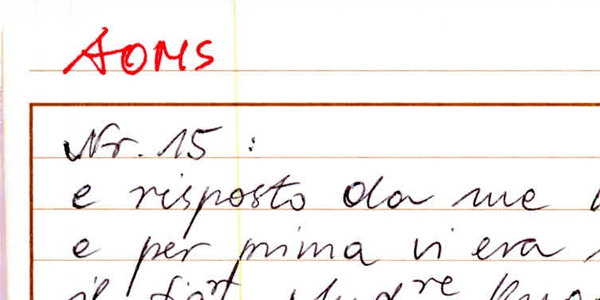 AOMS
Nr. 15 :
e risposto da me
e per prima vi era
il